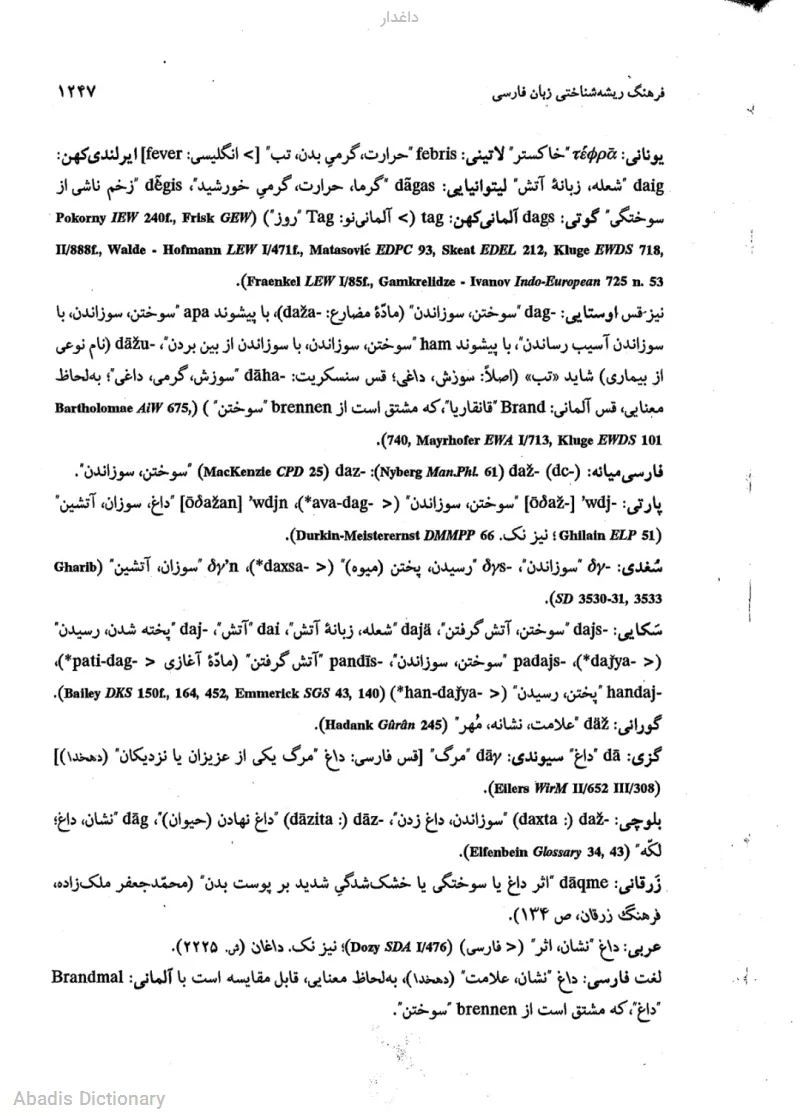 داغدار
فرهنگ ریشه‌شناختی زبان فارسی ۱۲۴۷
یونانی: τέφρα "خاکستر" لاتینی: febris "حرارت، گرمیِ بدن، تب" [> انگلیسی: fever] ایرلندی‌کهن:
daig "شعله، زبانهٔ آتش" لیتوانیایی: dāgas "گرما، حرارت، گرمیِ خورشید"، dẽgis "زخم ناشی از
سوختگی" گوتی: dags آلمانی‌کهن: tag (> آلمانی‌نو: Tag "روز") (Pokorny IEW 240f., Frisk GEW
II/888f., Walde - Hofmann LEW I/471f., Matasović EDPC 93, Skeat EDEL 212, Kluge EWDS 718,
Fraenkel LEW I/85f., Gamkrelidze - Ivanov Indo-European 725 n. 53).
نیز قس اوستایی: dag- "سوختن، سوزاندن" (مادّهٔ مضارع: daža-)، با پیشوند apa "سوختن، سوزاندن، با
سوزاندن آسیب رساندن"، با پیشوند ham "سوختن، سوزاندن، با سوزاندن از بین بردن"، dāžu- (نام نوعی
از بیماری) شاید «تب» (اصلاً: سوزش، داغی؛ قس سنسکریت: dāha- "سوزش، گرمی، داغی"؛ به‌لحاظ
معنایی، قس آلمانی: Brand "قانقاریا"، که مشتق است از brennen "سوختن") (Bartholomae AiW 675,
740, Mayrhofer EWA I/713, Kluge EWDS 101).
فارسی‌میانه: (dc-) daž- (Nyberg Man.Phl. 61): daz- (MacKenzie CPD 25) "سوختن، سوزاندن".
پارتی: ’wdj- [ōδaž-] "سوختن، سوزاندن" (< *ava-dag-)، ’wdjn [ōδažan] "داغ، سوزان، آتشین"
(Ghilain ELP 51؛ نیز نک. Durkin-Meisterernst DMMPP 66).
سُغدی: δγ- "سوزاندن"، δγs- "رسیدن، پختن (میوه)" (< *daxsa-)، δγ’n "سوزان، آتشین" (Gharib
SD 3530-31, 3533).
سَکایی: dajs- "سوختن، آتش گرفتن"، dajä "شعله، زبانهٔ آتش"، dai "آتش"، daj- "پخته شدن، رسیدن"
(< *daǰya-)، padajs- "سوختن، سوزاندن"، pandīs- "آتش گرفتن" (مادّهٔ آغازی < *pati-dag-)،
handaj- "پختن، رسیدن" (< *han-daǰya-) (Bailey DKS 150f., 164, 452, Emmerick SGS 43, 140).
گورانی: däž "علامت، نشانه، مُهر" (Hadank Gûrân 245).
گزی: dā "داغ" سیوندی: dāy "مرگ" [قس فارسی: داغ "مرگ یکی از عزیزان یا نزدیکان" (دهخدا)]
(Eilers WirM II/652 III/308).
بلوچی: daž- (daxta :) "سوزاندن، داغ زدن"، dāz- (dāzita :) "داغ نهادن (حیوان)"، dāg "نشان، داغ؛
لکّه" (Elfenbein Glossary 34, 43).
زَرقانی: dāqme "اثر داغ یا سوختگی یا خشک‌شدگیِ شدید بر پوست بدن" (محمّدجعفر ملک‌زاده،
فرهنگ زرقان، ص ۱۳۴).
عربی: داغ "نشان، اثر" (< فارسی) (Dozy SDA I/476)؛ نیز نک. داغان (ش. ۲۲۲۵).
لغت فارسی: داغ "نشان، علامت" (دهخدا)، به‌لحاظ معنایی، قابل مقایسه است با آلمانی: Brandmal
"داغ"، که مشتق است از brennen "سوختن".
Abadis Dictionary